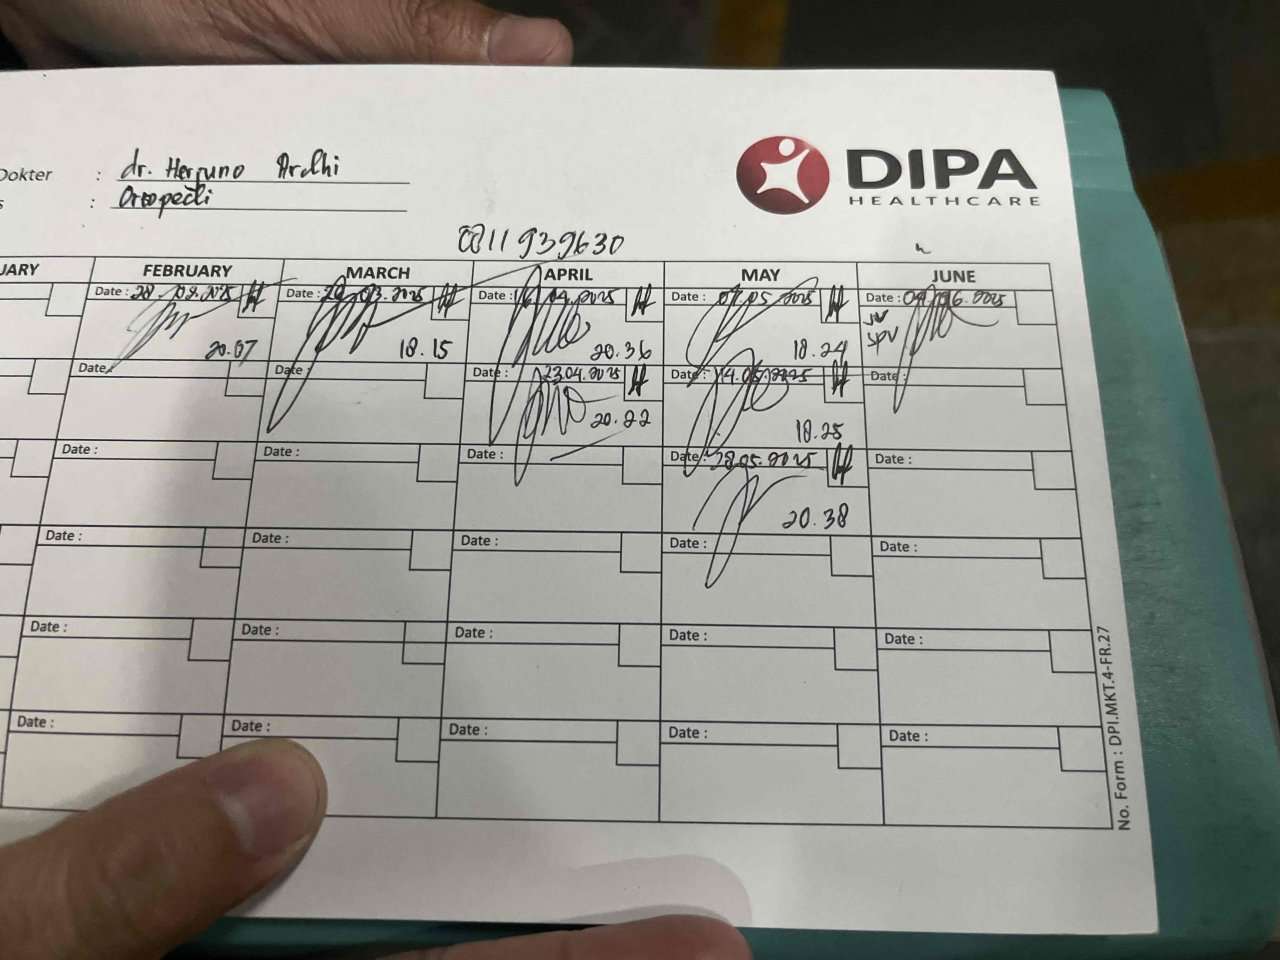 Dokter : dr. Herjuno Ardhi
s : Ortopedi
DIPA
HEALTHCARE
0811939630
UARY FEBRUARY MARCH APRIL MAY JUNE
Date : 28.02.2025 Date : 20.03.2025 Date : 16.04.2025 Date : 07.05.2025 Date : 04.06.2025
SPV
20.07 18.15 20.36 18.24
Date : Date : Date : 23.04.2025 Date : 14.05.2025 Date :
20.22 18.25
Date : Date : Date : Date : 28.05.2025 Date :
20.38
Date : Date : Date : Date : Date :
Date : Date : Date : Date : Date :
Date : Date : Date : Date : Date :
No. Form : DPI.MKT.4-FR.27